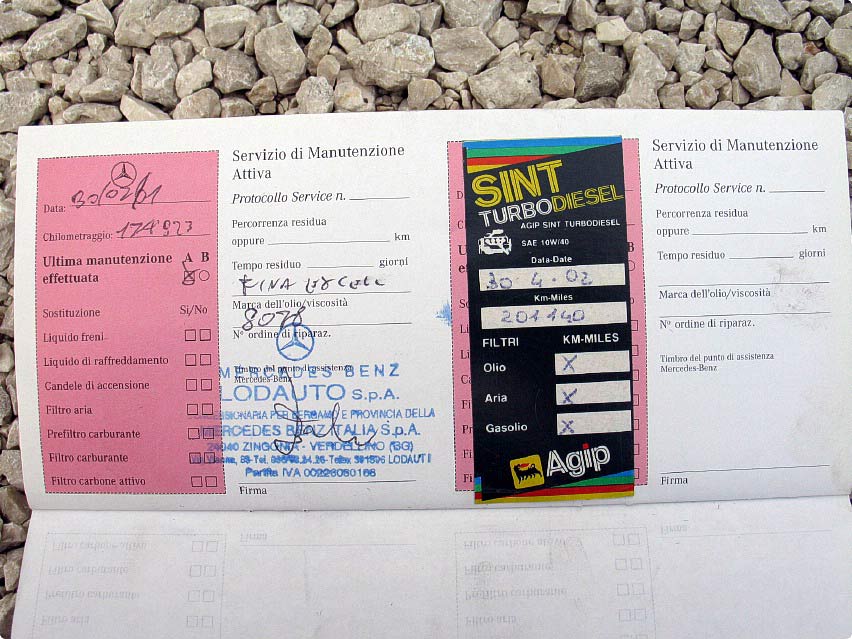 Data: 30/02/01
Chilometraggio: 174'923
Ultima manutenzione A B
effettuata
Sostituzione Si/No
Liquido freni
Liquido di raffreddamento
Candele di accensione
Filtro aria
Prefiltro carburante
Filtro carburante
Filtro carbone attivo
Servizio di Manutenzione
Attiva
Protocollo Service n.
Percorrenza residua
oppure km
Tempo residuo giorni
FINA
Marca dell'olio/viscosità
Nº ordine di riparaz.
Timbro del punto di assistenza
Mercedes-Benz
MERCEDES BENZ
LODAUTO S.p.A.
CONCESSIONARIA PER BERGAMO E PROVINCIA DELLA
MERCEDES BENZ ITALIA S.p.A.
24040 ZINGONIA - VERDELLINO (BG)
LODAUT I
Partita IVA
Firma
SINT
TURBODIESEL
AGIP SINT TURBODIESEL
SAE 10W/40
Data-Date
30-4-02
Km-Miles
201140
FILTRI KM-MILES
Olio X
Aria X
Gasolio X
Agip
Servizio di Manutenzione
Attiva
Protocollo Service n.
Percorrenza residua
oppure km
Tempo residuo giorni
Marca dell'olio/viscosità
Nº ordine di riparaz.
Timbro del punto di assistenza
Mercedes-Benz
Firma